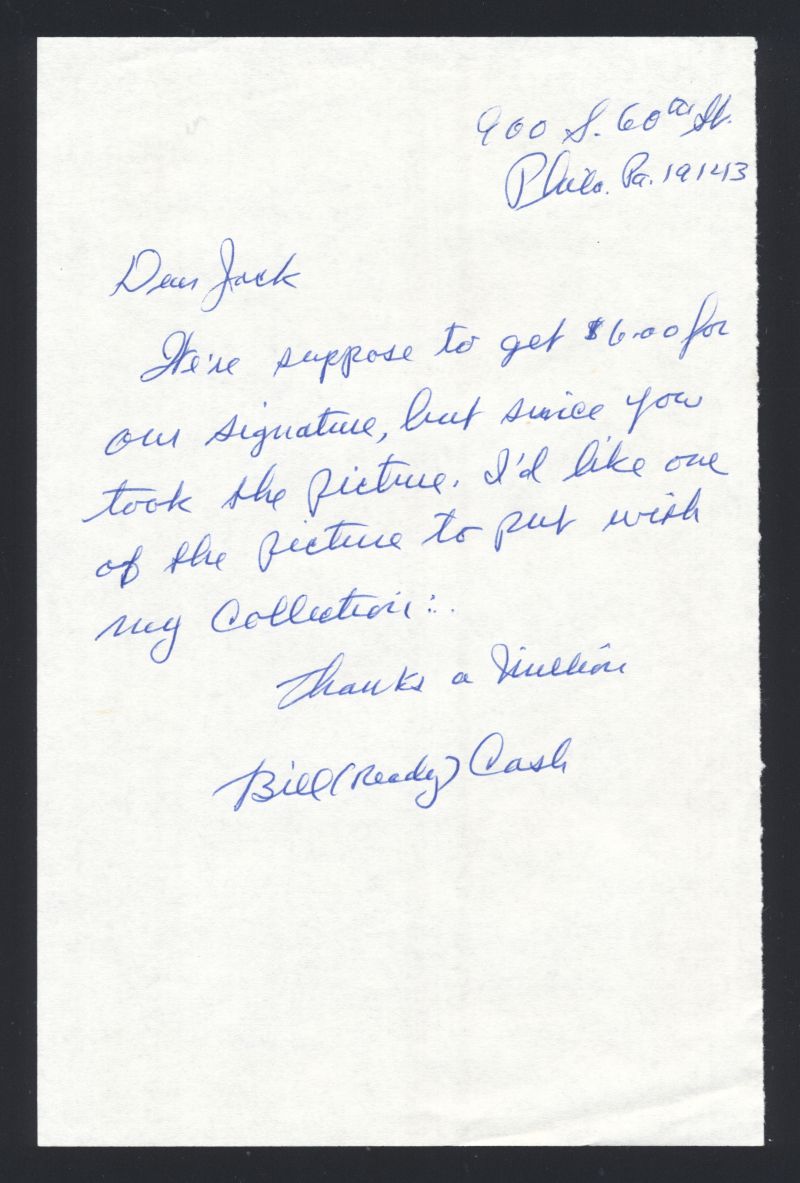 900 S. 60th St.
Phila. Pa. 19143
Dear Jack
We're suppose to get $6.00 for
our signature, but since you
took the picture. I'd like one
of the picture to put with
my Collection:.
Thanks a Million
Bill (Ready) Cash